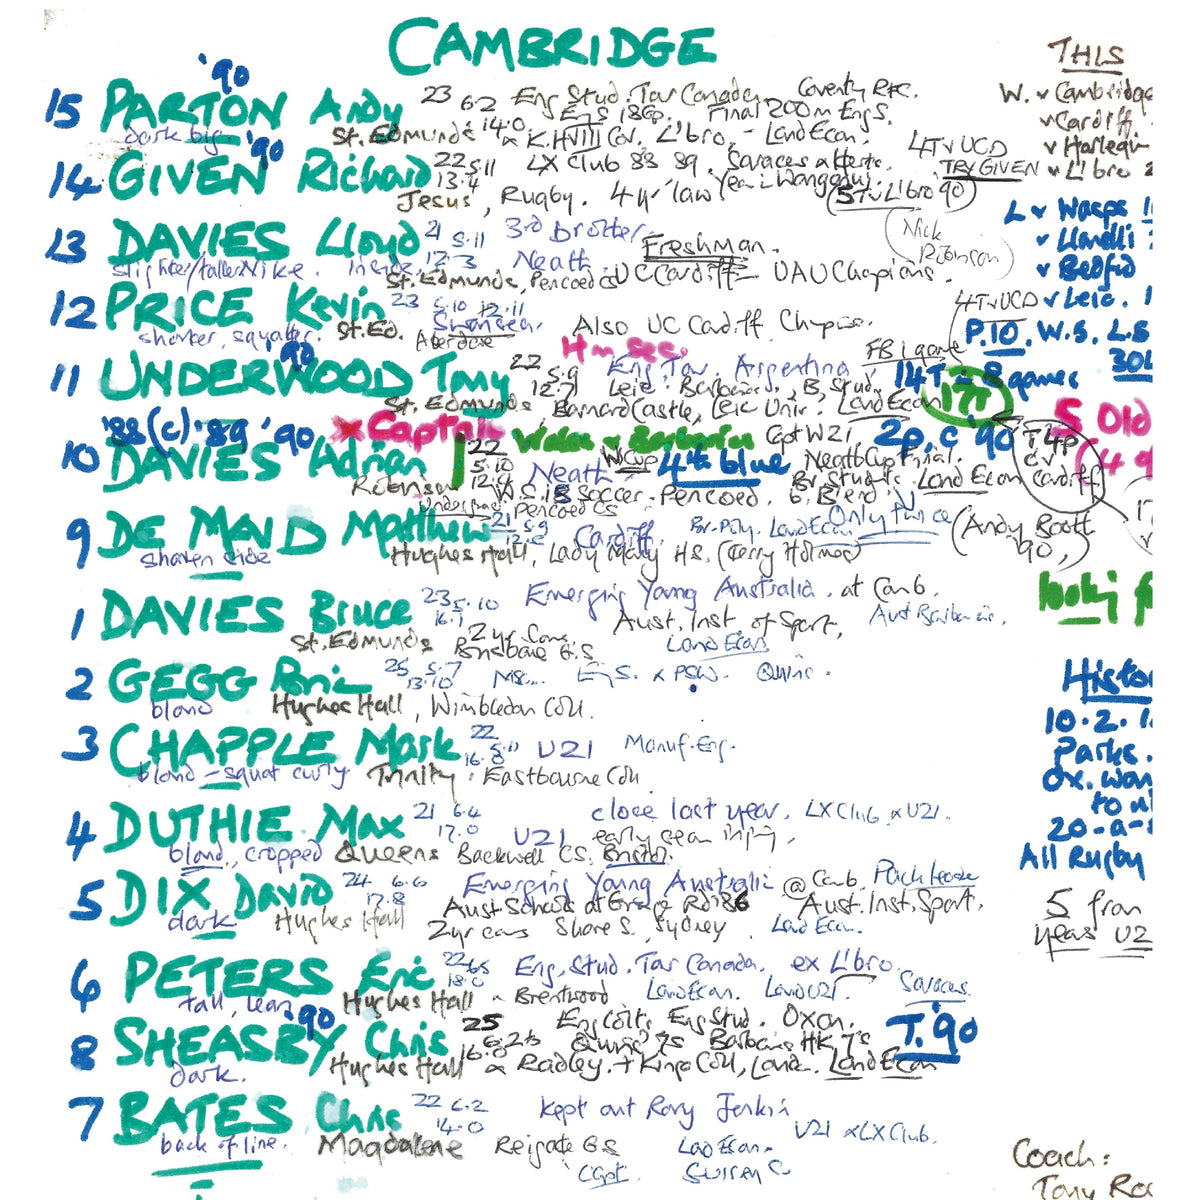 CAMBRIDGE
THIS
W. v Cambridge
v Cardiff
v Harlequ
v L'bro 2
'90
15 PARTON Andy 23 6.2 Eng Stud. Tour Canada Coventry RFC.
14.0 Eng S 18Gp. Final 200m Eng S.
dark big St. Edmunds K.HVIII Cov. L'bro - Land Econ.
'90
14 GIVEN Richard 22 5.11 LX Club 88 89. Saracens Herts. 4T v UCD
13.4 Year in Wanganui. TRY GIVEN
Jesus, Rugby. 4 yr law (5T v L'bro 90)
L v Wasps
v Llanelli
v Bedfd
v Leic. 1
13 DAVIES Lloyd 21 5.11 3rd brother Freshman. (Nick Robinson)
12.3 Neath
slighter/taller Mike. inside. St. Edmunds, Pencoed CS UC Cardiff - UAU Champions.
12 PRICE Kevin 23 5.10 12.11 4T v UCD
Swansea. Also UC Cardiff
shorter, squatter. St. Ed. Aberdare
P.10. W.S. L.S
30L
'90
Hon Sec. FB 1 game
11 UNDERWOOD Tony 22 5.9 Eng Tour. Argentina 14T in 8 games
12.7 Leic. Barbarians, B. Stud.
St. Edmunds, Barnard Castle, Leic Univ. Land Econ 17T
5 Old
'88 (c) '89 '90 x Captain Wales v Barbarians Capt W21 2p, c '90 T 4p
10 DAVIES Adrian 22 5.10 12.4 Neath W Cup 4th blue Neath Cup Final.
Robinson W.S. 18 Soccer. Pencoed. Br Students. Land Econ Cardiff
Undergrad Pencoed CS
9 DE MAID Matthew 21 5.9 12.2 Cardiff. Br. Poly. Land Econ Only twice
shaven side Hughes Hall, Lady Mary H.S. (Terry Holmes) (Andy Booth 90,)
1 DAVIES Bruce 23 5.10 Emerging Young Australia. at Camb.
16.1 Aust. Inst. of Sport, Aust Barbarians.
St. Edmunds 2 yr Cam. Brisbane G.S Land Econ
looking f
2 GEGG Boris 25 5.7 13.10 MSc... Eng S. x PSW. Quins.
blond Hughes Hall, Wimbledon Coll.
Histo
10.2.1
Parks.
Ox. won
3 CHAPPLE Mark 22 5.11 16.8 U21 Manuf. Eng.
blond - squat curly Trinity. Eastbourne Coll
20-a-s
All Rugby
4 DUTHIE Max 21 6.4 17.0 close last year. LX Club x U21.
U21 early season injury.
blond, cropped Queens Backwell CS. Bristol.
5 DIX David 24 6.6 17.8 Emerging Young Australia @ Camb. Pack leader
Aust Schools at Grange Rd '86 Aust. Inst. Sport.
dark Hughes Hall 2 yr cans Shore S. Sydney Land Econ.
5 from
years U2
6 PETERS Eric 22 6.5 18.0 Eng. Stud. Tour Canada. ex L'bro.
tall, lean Hughes Hall Brentwood Land Econ. Lond U21. Saracens.
'90
8 SHEASBY Chris 25 6.2½ 16.0 Eng Colts, Eng Stud. Oxon. T. '90
Quins' 7s Barbarians HK 7s
dark. Hughes Hall Radley. + Kings Coll, Lond. Land Econ
7 BATES Chris 22 6.2 14.0 Kept out Rory Jenkins
U21 x LX Club.
back of line. Magdalene Reigate G.S Land Econ.
Capt Surrey C
Coach:
Tony Ro